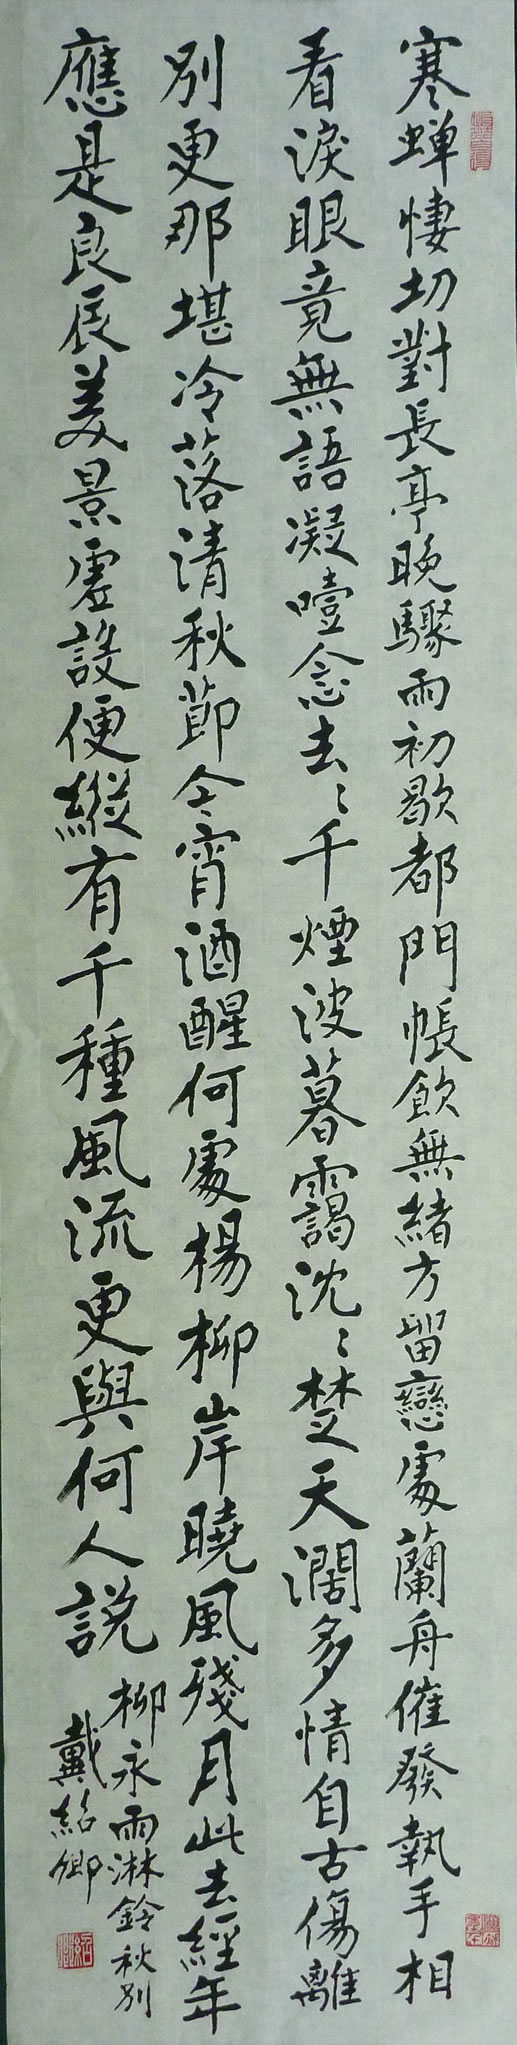 寒蝉悽切對長亭晚驟雨初歇都門帳飲無緒方留戀處蘭舟催發執手相
看淚眼竟無語凝噎念去〻千煙波暮靄沈〻楚天濶多情自古傷離
別更那堪冷落清秋節今宵酒醒何處楊柳岸曉風殘月此去經年
應是良辰美景虛設便縱有千種風流更與何人説
柳永雨淋鈴秋別
戴紹卿